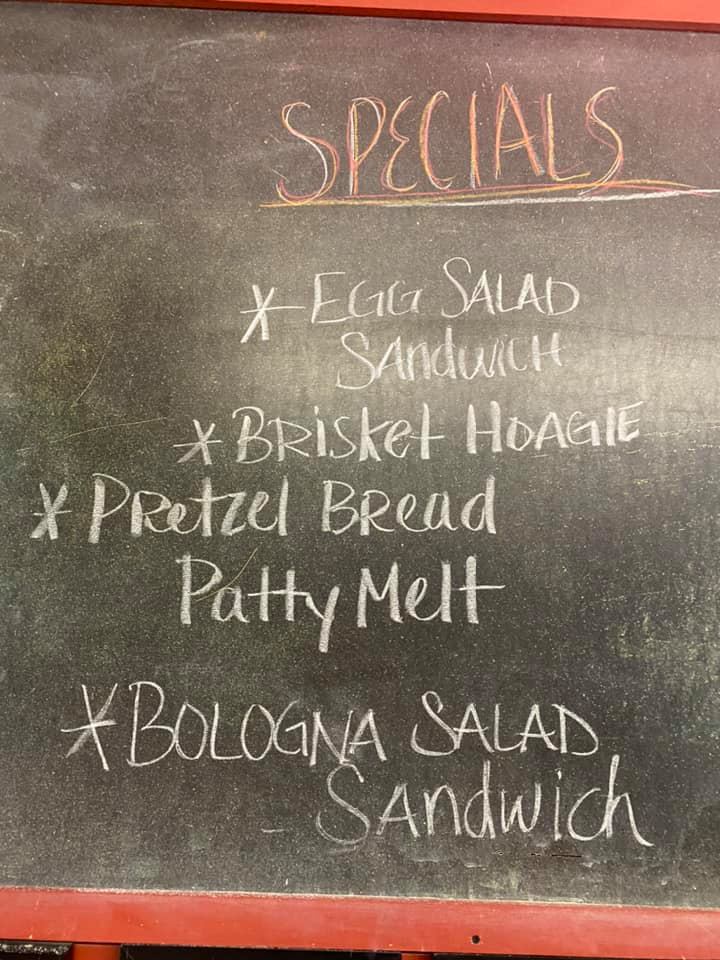 SPECIALS
* EGG SALAD
SANdwICH
* BRisket HOAGIE
* PRetzel BRead
Patty Melt
* BOLOGNA SALAD
SANdwich